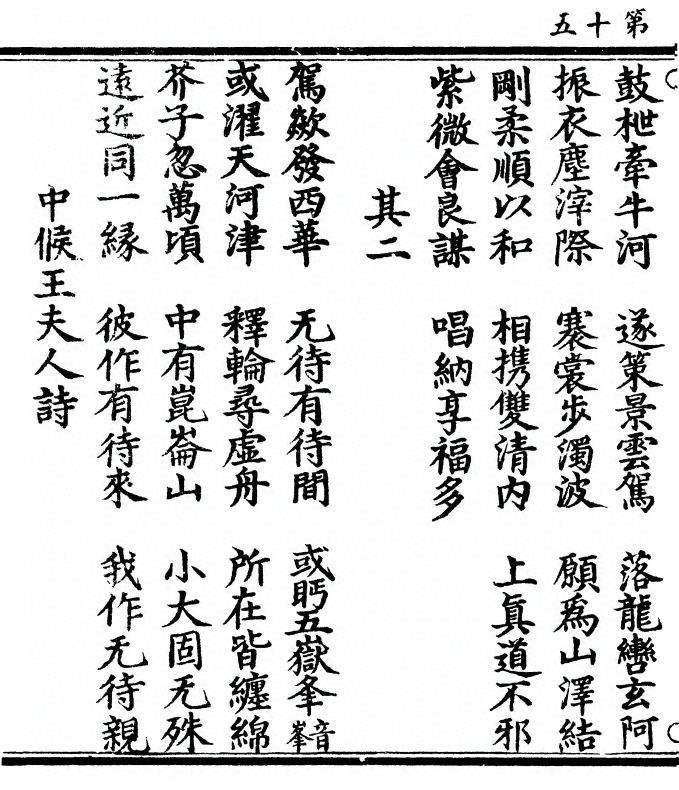 第十五
鼓枻牽牛河　遂策景雲駕　落龍轡玄阿
振衣塵滓際　褰裳步濁波　願爲山澤結
剛柔順以和　相携雙清内　上眞道不邪
紫微會良謀　唱納享福多
其二
駕欻發西華　无待有待間　或眄五嶽峯音峯
或濯天河津　釋輪尋虛舟　所在皆纏綿
芥子忽萬頃　中有崑崙山　小大固无殊
遠近同一緣　彼作有待來　我作无待親
中候王夫人詩